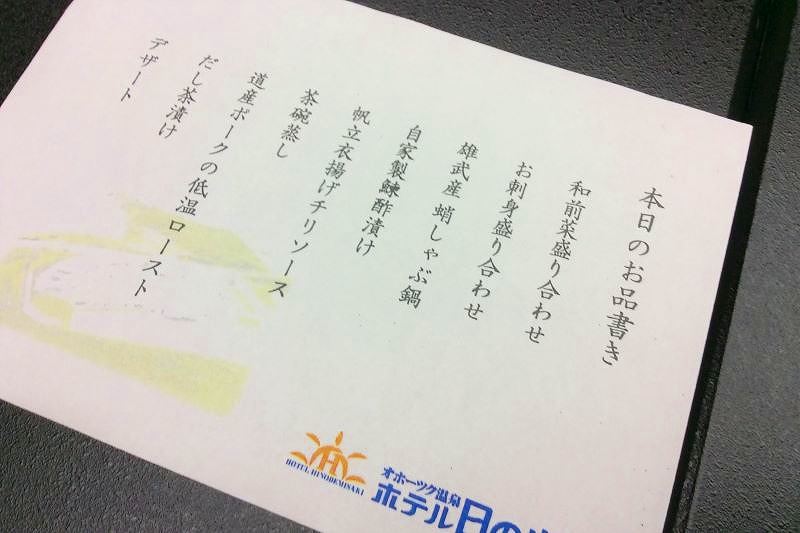 本日のお品書き
和前菜盛り合わせ
お刺身盛り合わせ
雄武産 蛸しゃぶ鍋
自家製鰊酢漬け
帆立衣揚げチリソース
茶碗蒸し
道産ポークの低温ロースト
だし茶漬け
デザート
HOTEL HINODEMISAKI
オホーツク温泉
ホテル日の